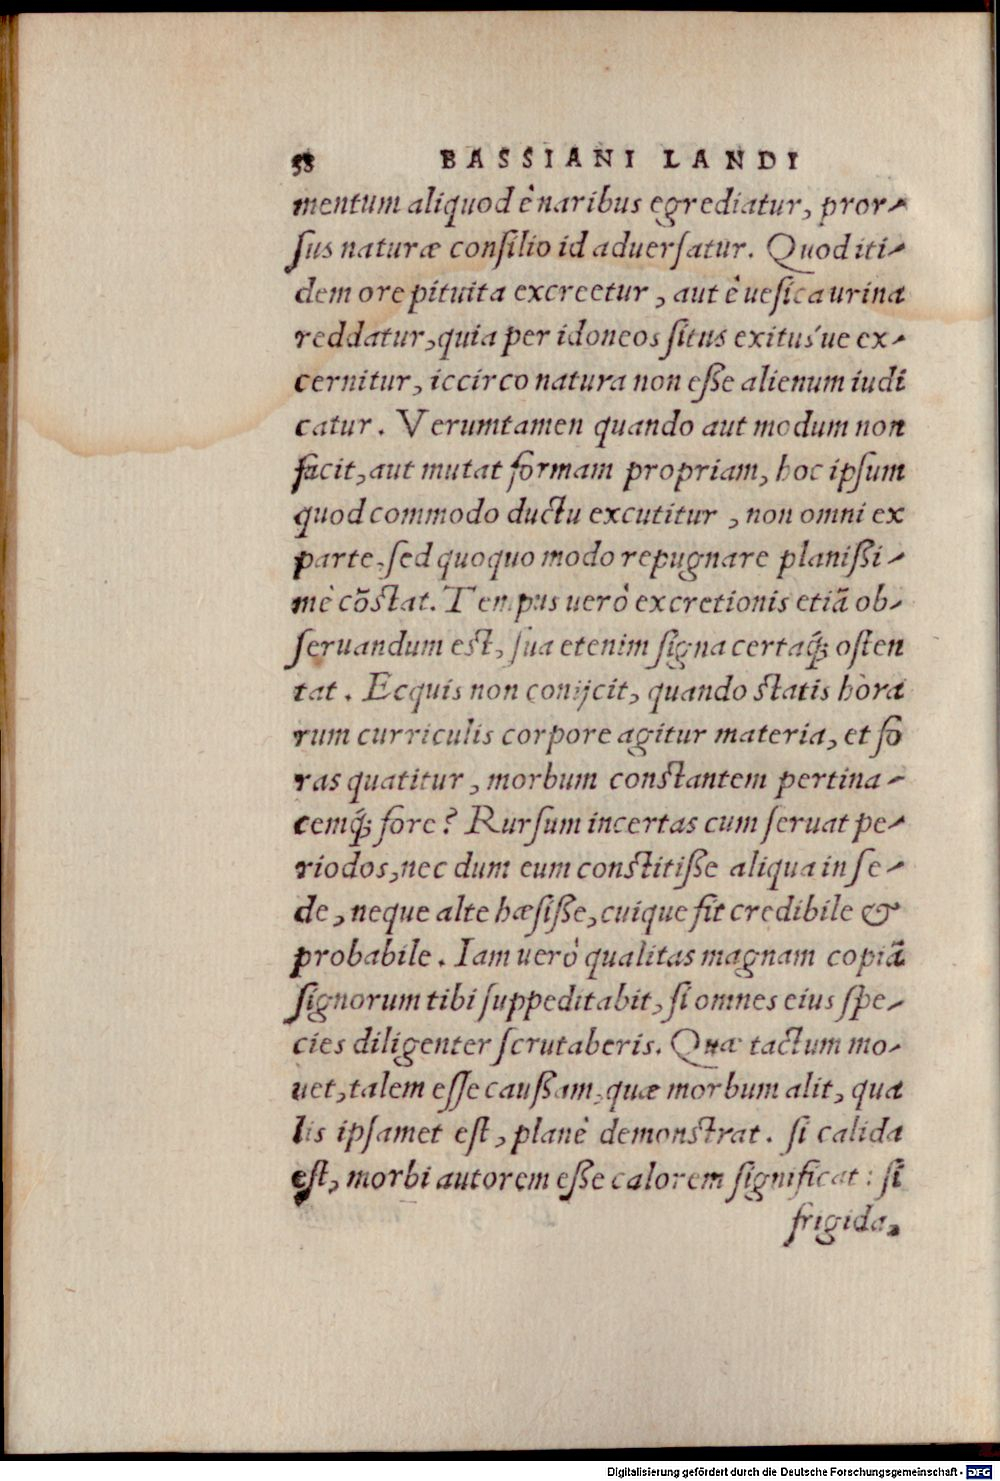 58 BASSIANI LANDI
mentum aliquod è naribus egrediatur, pror-
ſus naturæ conſilio id aduerſatur. Quod iti-
dem ore pituita excreetur, aut è ueſica urina
reddatur, quia per idoneos ſitus exitus´ue ex-
cernitur, iccirco natura non eſſe alienum iudi
catur. Verumtamen quando aut modum non
facit, aut mutat formam propriam, hoc ipſum
quod commodo ductu excutitur, non omni ex
parte, ſed quoquo modo repugnare planiſſi-
mè cõſtat. Tempus uerò excretionis etiã ob-
ſeruandum eſt, ſua etenim ſigna certaq́; oſten
tat. Ecquis non conijcit, quando ſtatis hora
rum curriculis corpore agitur materia, et fo
ras quatitur, morbum conſtantem pertina-
cemq́; fore? Rurſum incertas cum ſeruat pe-
riodos, nec dum eum conſtitiſſe aliqua in ſe-
de, neque alte hæſiſſe, cuique fit credibile &
probabile. Iam uerò qualitas magnam copiã
ſignorum tibi ſuppeditabit, ſi omnes eius ſpe-
cies diligenter ſcrutaberis. Quæ tactum mo-
uet, talem eſſe cauſſam, quæ morbum alit, qua
lis ipſamet eſt, planè demonſtrat. ſi calida
eſt, morbi autorem eſſe calorem ſignificat: ſi
frigida,
Digitalisierung gefördert durch die Deutsche Forschungsgemeinschaft - DFG